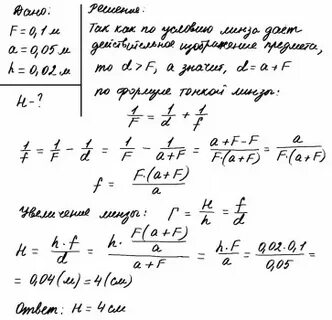 Дано:
F = 0,1 м
a = 0,05 м
h = 0,02 м
H - ?
Решение:
Так как по условию линза дает
действительное изображение предмета,
то d > F, а значит, d = a + F
по формуле тонкой линзы:
1/F = 1/d + 1/f
1/f = 1/F - 1/d = 1/F - 1/(a+F) = (a+F-F)/(F(a+F)) = a/(F·(a+F))
f = F·(a+F)/a
Увеличение линзы: Г = H/h = f/d
H = h·f/d = h · (F(a+F)/a)/(a+F) = h·F/a = 0,02·0,1/0,05 =
= 0,04(м) = 4(см)
Ответ: H = 4 см